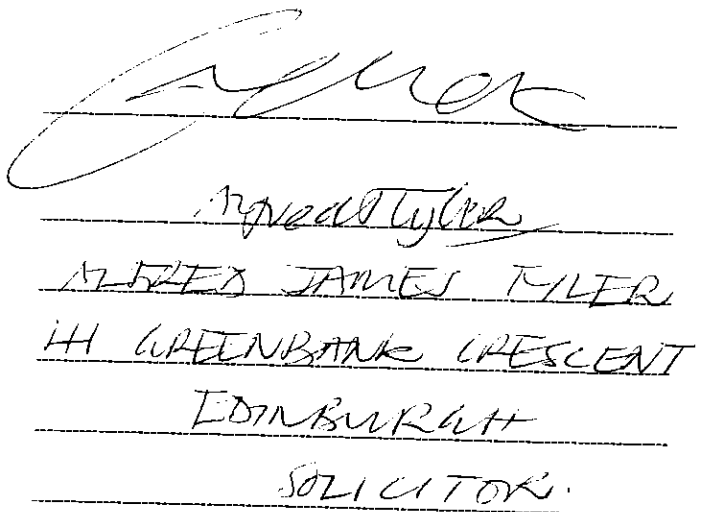 Alfred J Tyler
ALFRED JAMES TYLER
GREENBANK CRESCENT
EDINBURGH
SOLICITOR.